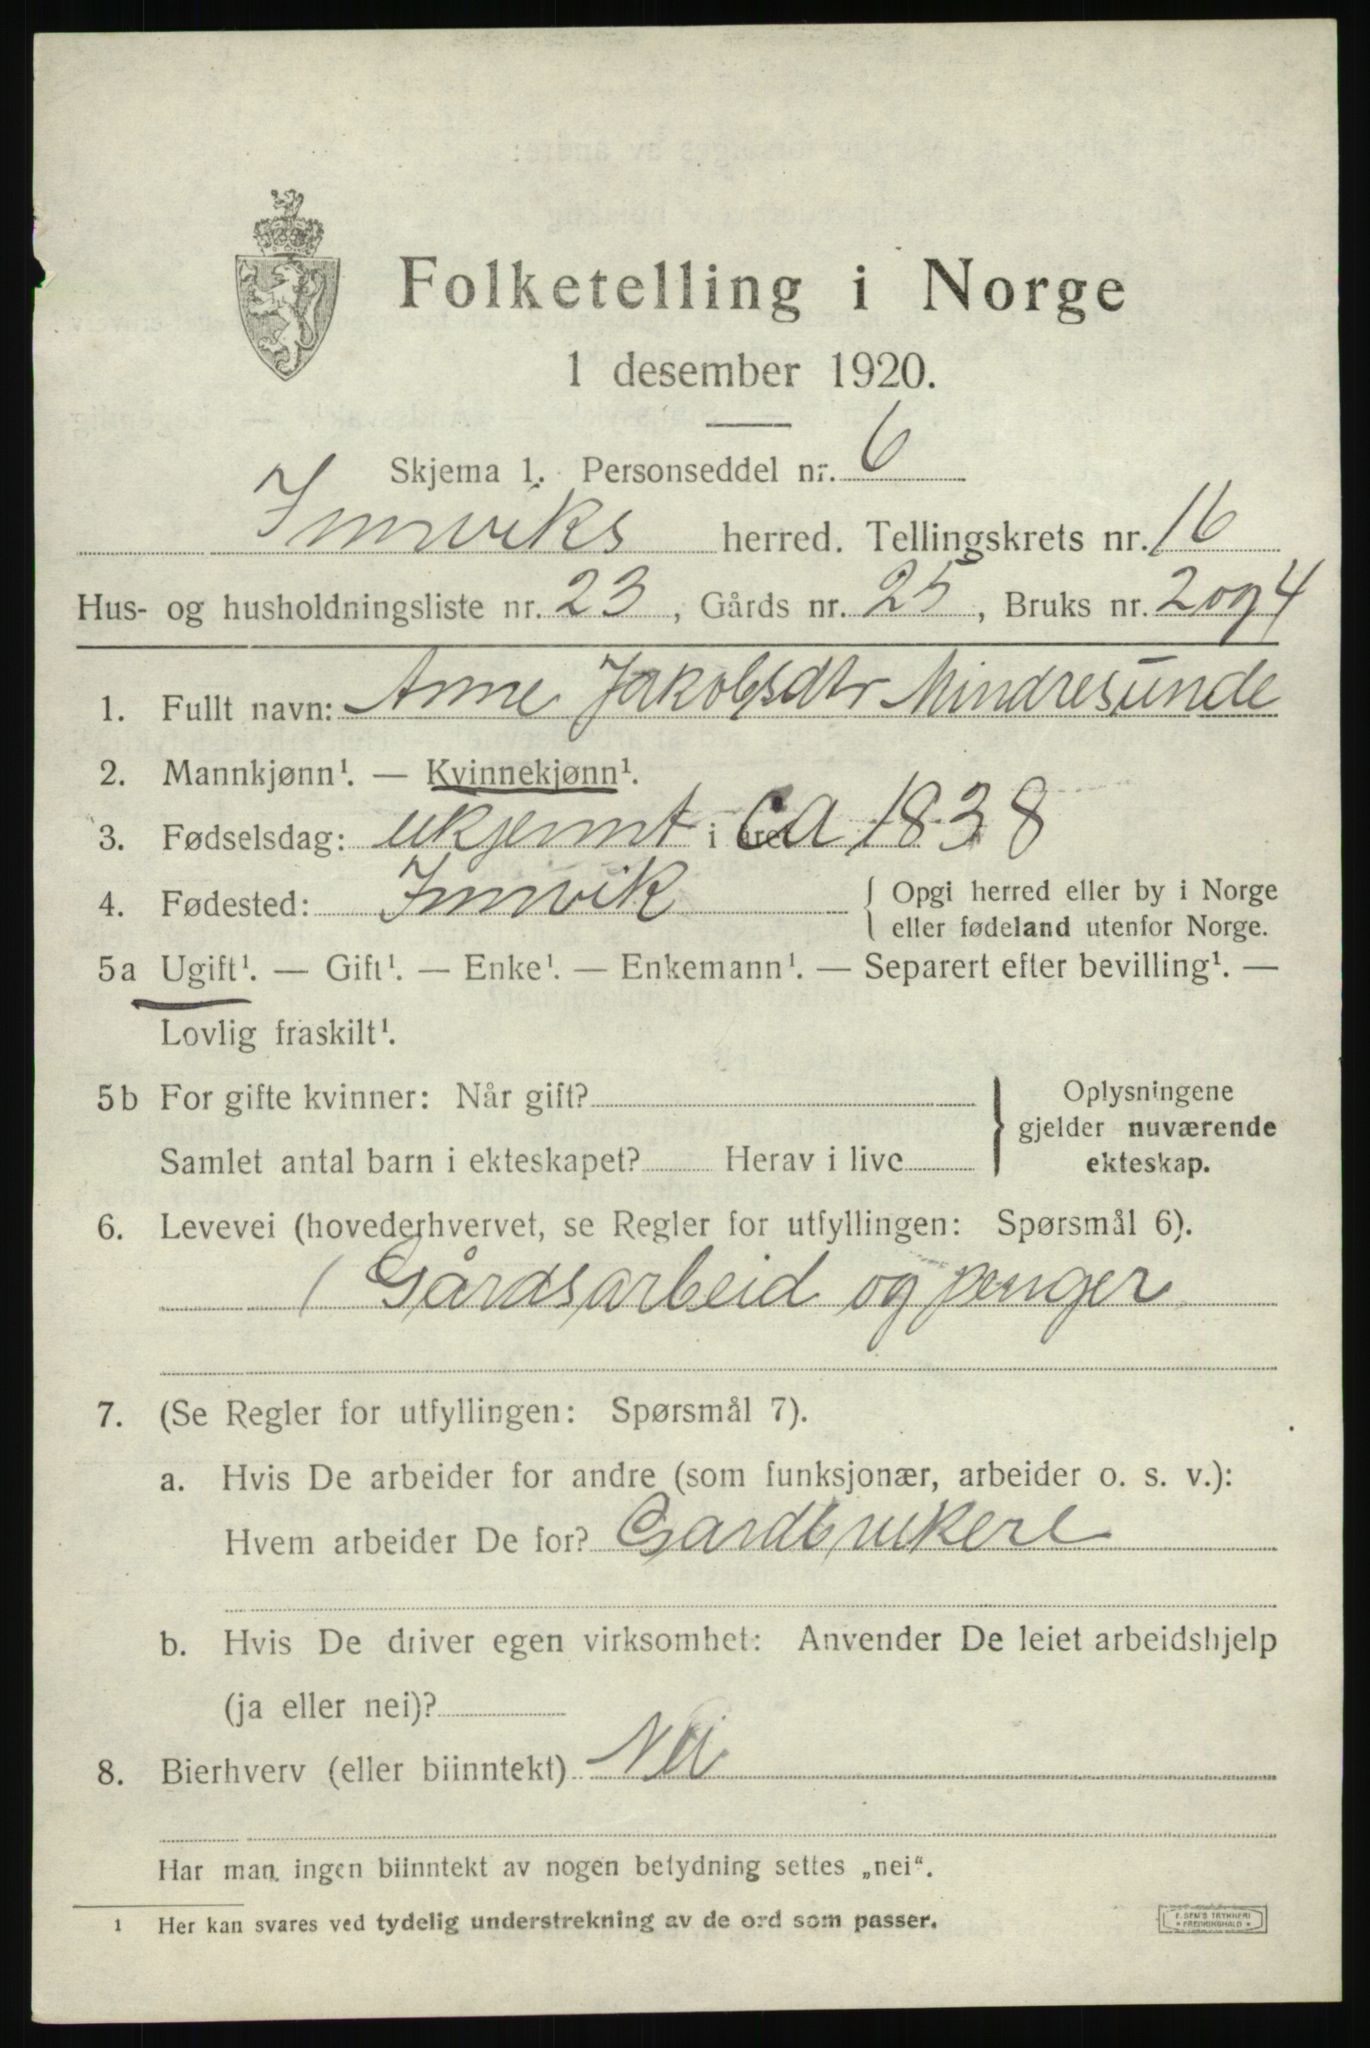 Folketelling i Norge
1 desember 1920.
Skjema 1. Personseddel nr. 6
Innviks herred. Tellingskrets nr. 16
Hus- og husholdningsliste nr. 23, Gårds nr. 25, Bruks nr. 2 og 4
1. Fullt navn: Anne Jakobsdtr Mindresunde
2. Mannkjønn¹. — Kvinnekjønn¹.
3. Fødselsdag: ukjennt i året ca 1838
4. Fødested: Innvik { Opgi herred eller by i Norge
eller fødeland utenfor Norge.
5a Ugift¹. — Gift¹. — Enke¹. — Enkemann¹. — Separert efter bevilling¹. —
Lovlig fraskilt¹.
5b For gifte kvinner: Når gift? } Oplysningene
gjelder nuværende
Samlet antal barn i ekteskapet? Herav i live
ekteskap.
6. Levevei (hovederhvervet, se Regler for utfyllingen: Spørsmål 6).
Gårdsarbeid og penger
7. (Se Regler for utfyllingen: Spørsmål 7).
a. Hvis De arbeider for andre (som funksjonær, arbeider o. s. v.):
Hvem arbeider De for? Gardbrukere
b. Hvis De driver egen virksomhet: Anvender De leiet arbeidshjelp
(ja eller nei)?
8. Bierhverv (eller biinntekt) Nei
Har man ingen biinntekt av nogen betydning settes „nei“.
¹ Her kan svares ved tydelig understrekning av de ord som passer.
E. SEM'S TRYKKERI
* FREDRIKSHALD *